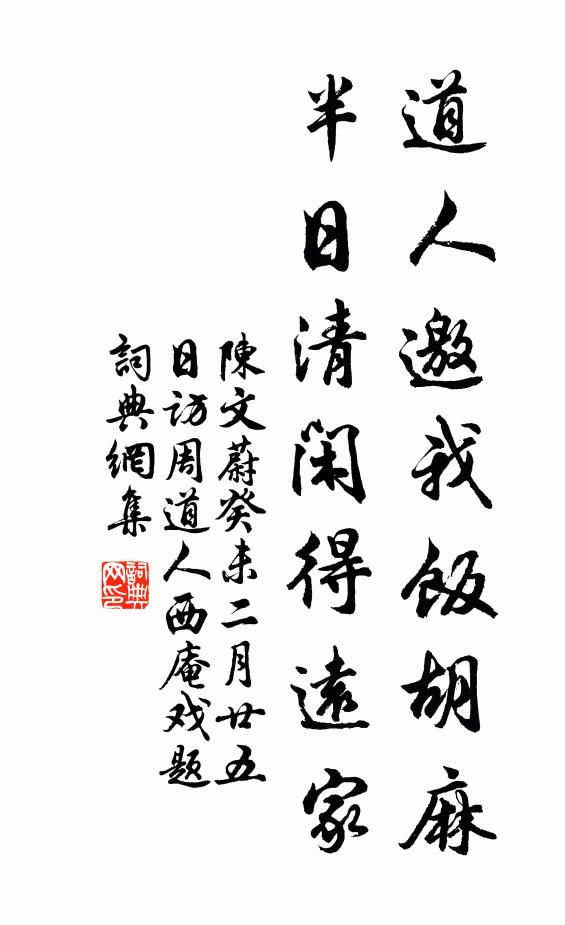 道人邀我飯胡麻
半日清閑得遠家
陳文蔚癸未二月廿五
日訪周道人西庵戏题
詞典網集
詞典
网印